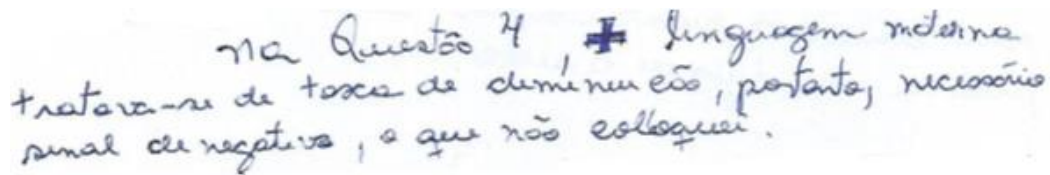 Na Questão 4, linguagem materna
tratava-se de taxa de diminuição, portanto, necessário
sinal de negativo, o que não colloquei.